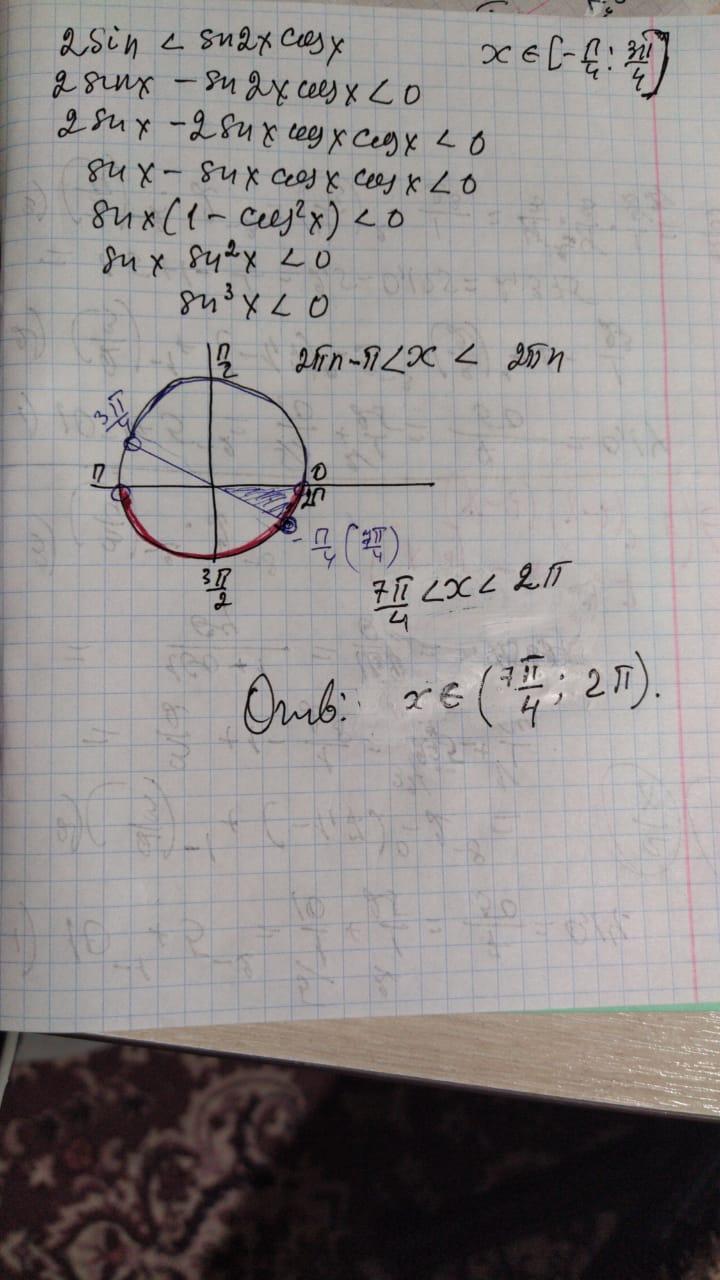 2sin < sin2x cosx x ∈ [-π/4 ; 3π/4]
2sinx - sin2x cosx < 0
2sinx - 2sinx cosx cosx < 0
sinx - sinx cosx cosx < 0
sinx(1 - cos²x) < 0
sinx sin²x < 0
sin³x < 0
π/2 2πn-π < x < 2πn
3π/4
π 0
2π
-π/4 (7π/4)
3π/2
7π/4 < x < 2π
Ответ: x ∈ (7π/4 ; 2π).